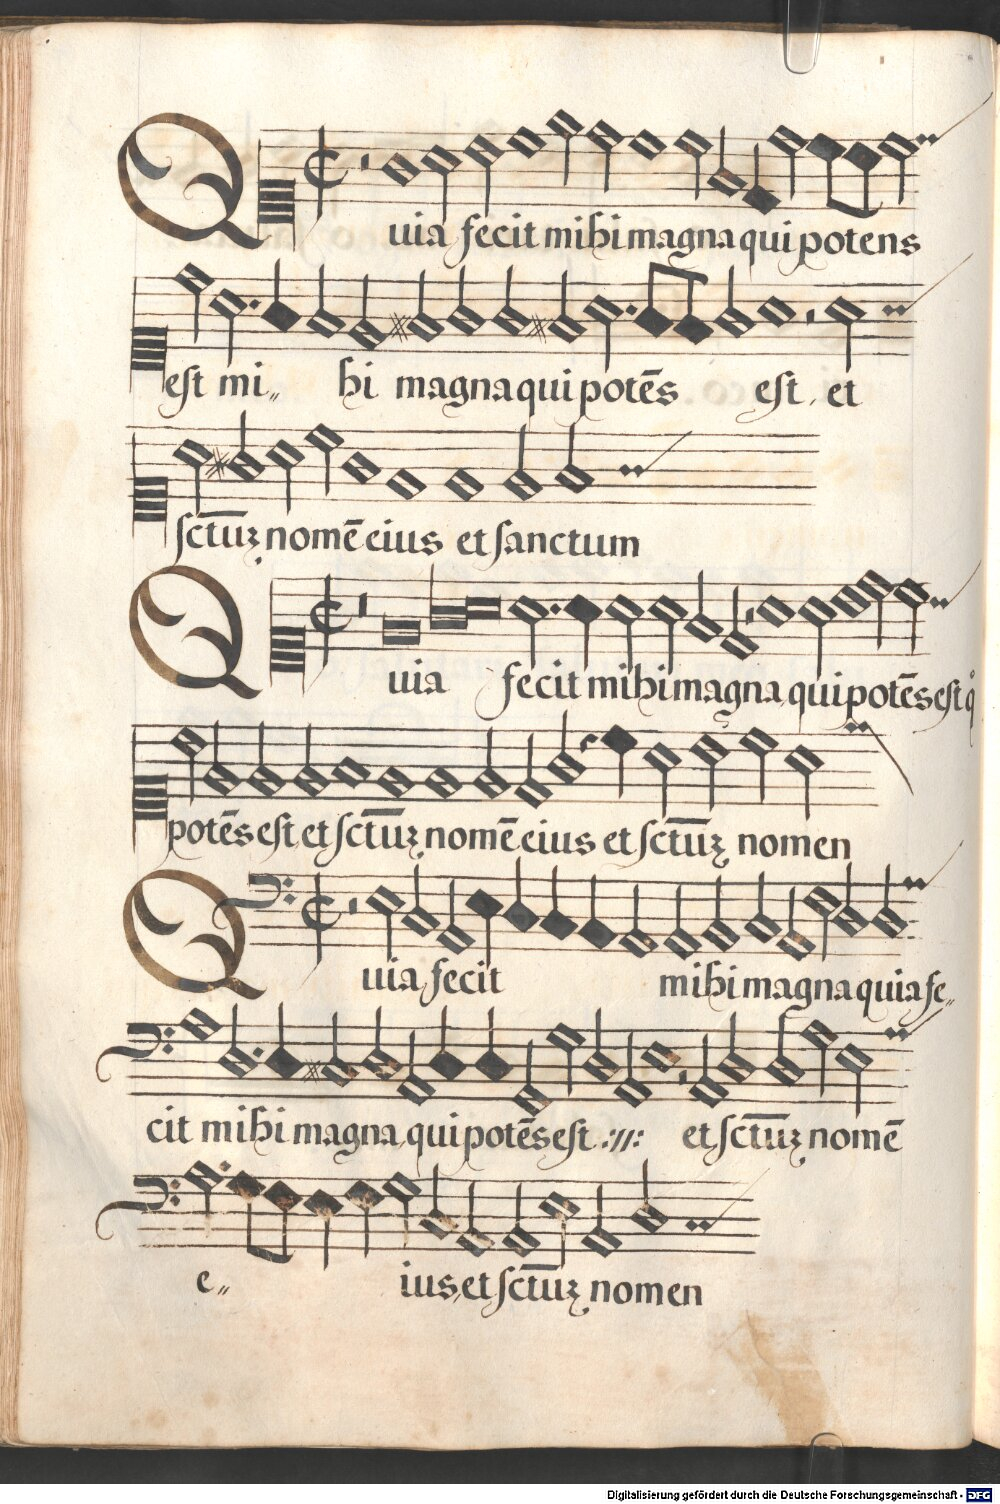 Quia fecit mihi magna qui potens
est mi〃 hi magna qui potēs est, et
sctūꝫ nomē eius et sanctum
Quia fecit mihi magna qui potēs est q̇
potēs est, et sctūꝫ nomē eius et sctūꝫ nomen
Quia fecit mihi magna quia fe〃
cit mihi magna qui potēs est :||: et sctūꝫ nomē
e〃 ius, et sctūꝫ nomen
Digitalisierung gefördert durch die Deutsche Forschungsgemeinschaft - DFG